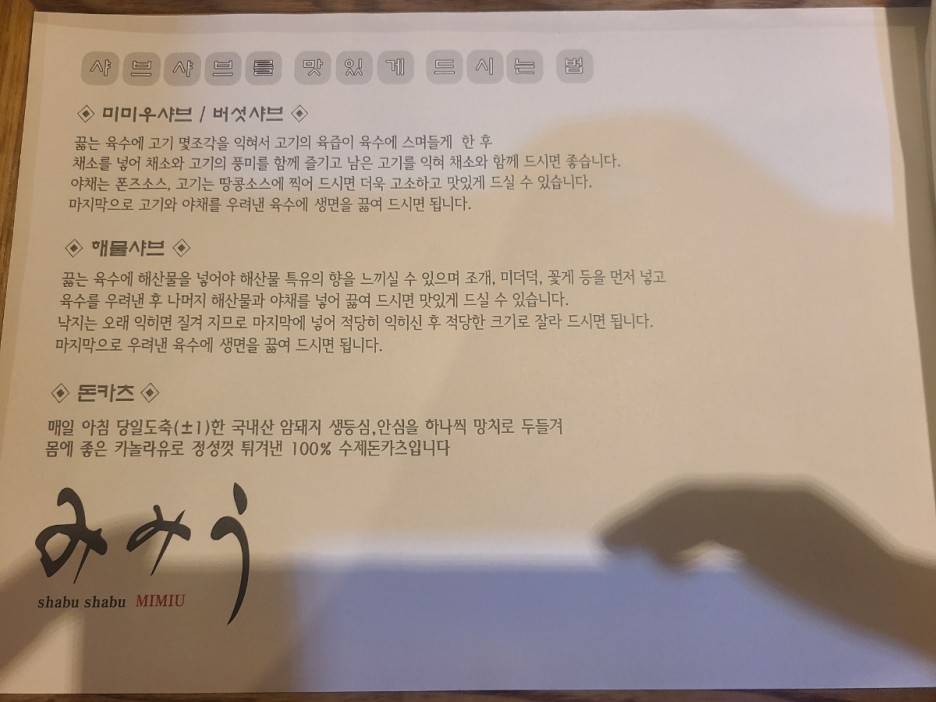 샤브샤브를 맛있게 드시는 법
◈ 미미우샤브 / 버섯샤브 ◈
끓는 육수에 고기 몇조각을 익혀서 고기의 육즙이 육수에 스며들게 한 후
채소를 넣어 채소와 고기의 풍미를 함께 즐기고 남은 고기를 익혀 채소와 함께 드시면 좋습니다.
야채는 폰즈소스, 고기는 땅콩소스에 찍어 드시면 더욱 고소하고 맛있게 드실 수 있습니다.
마지막으로 고기와 야채를 우려낸 육수에 생면을 끓여 드시면 됩니다.
◈ 해물샤브 ◈
끓는 육수에 해산물을 넣어야 해산물 특유의 향을 느끼실 수 있으며 조개, 미더덕, 꽃게 등을 먼저 넣고
육수를 우려낸 후 나머지 해산물과 야채를 넣어 끓여 드시면 맛있게 드실 수 있습니다.
낙지는 오래 익히면 질겨 지므로 마지막에 넣어 적당히 익히신 후 적당한 크기로 잘라 드시면 됩니다.
마지막으로 우려낸 육수에 생면을 끓여 드시면 됩니다.
◈ 돈카츠 ◈
매일 아침 당일도축(±1)한 국내산 암돼지 생등심,안심을 하나씩 망치로 두들겨
몸에 좋은 카놀라유로 정성껏 튀겨낸 100% 수제돈카츠입니다
みみう
shabu shabu MIMIU